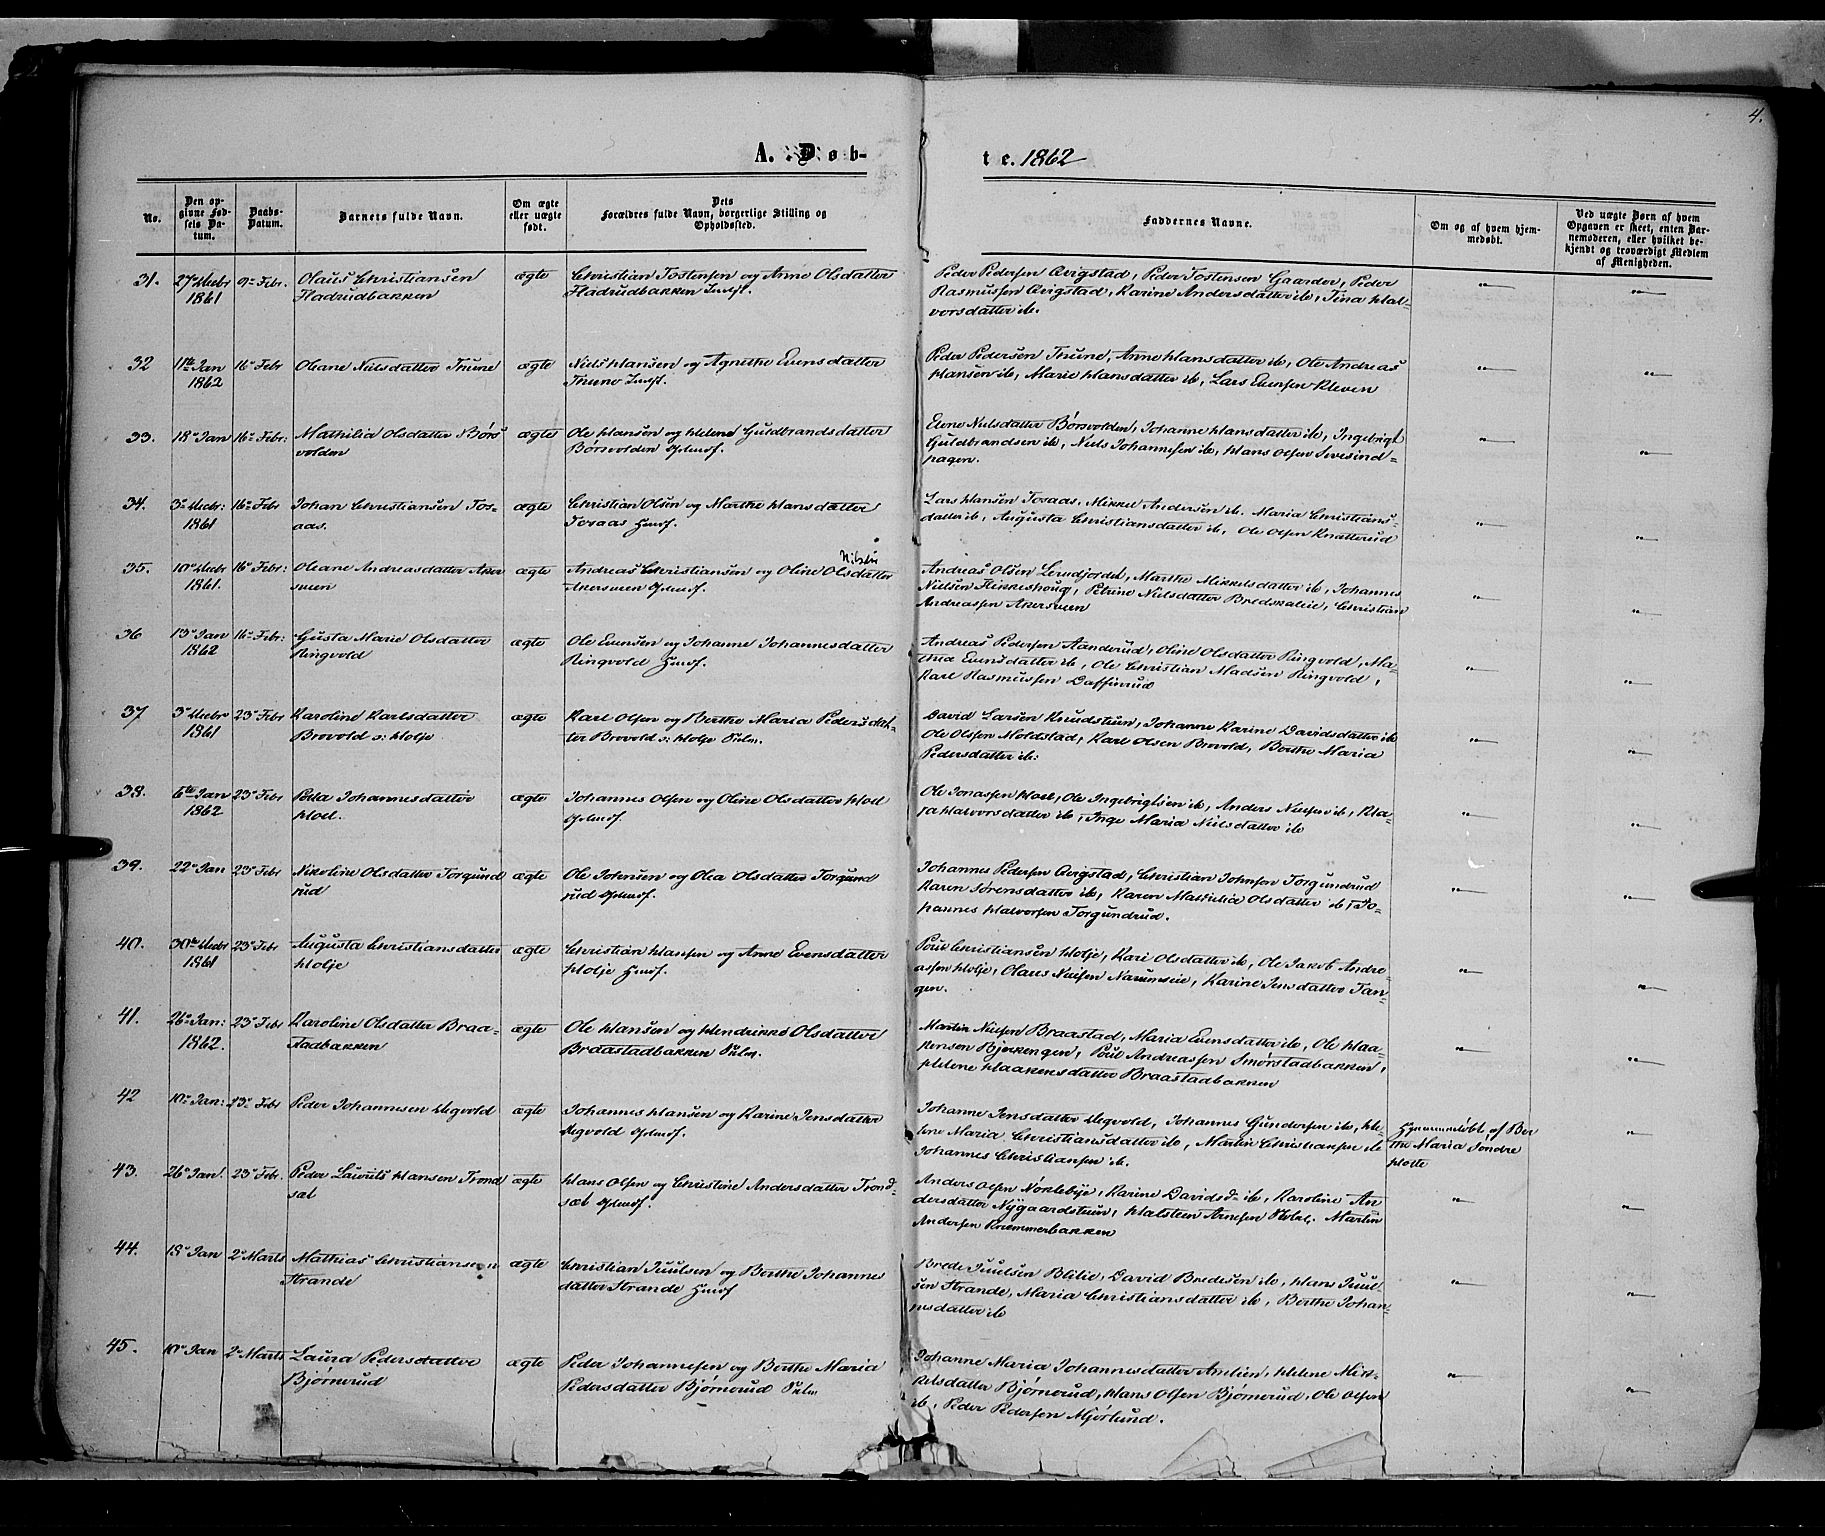 4.
A. Døb-
t e. 1862
No.
Den op-
givne Fød-
sels Da-
tum.
Daabs-
Datum.
Barnets fulde Navn.
Om ægte
eller uægte
født.
Dets
Forældres fulde Navn, borgerlige Stilling og
Opholdssted.
Faddernes Navne.
Om og af hvem hjem-
medøbt.
Ved uægte Børn af hvem
Opgaven er skeet, enten Bar-
nemoderen, eller hvilket be-
kjendt og troværdigt Medlem
af Menigheden.
31. 27 Decbr 9 Febr. Olaus Christiansen ægte Christian Tostensen og Anne Olsdatter
1861 Hadrudbakken Hadrudbakken Indst.
Peder Pedersen Qvigstad, Peder Tostensen Gaarder, Peder
Rasmussen Qvigstad, Karine Andersdatter ib, Tina Hal-
vorsdatter ib.
32 11te Jan 16 Febr Oleane Nielsdatter Thune ægte Niels Hansen og Agnethe Evensdatter
1862 Thune Indst.
Peder Pedersen Thune, Anne Hansdatter ib, Ole Andreas
Hansen ib, Marie Hansdatter ib, Lars Evensen Kleven
33. 18 Jan 16 Febr: Mathilia Olsdatter Børs ægte Ole Hansen og Helene Guldbrandsdatter
volden Børsvolden
Elene Nielsdatter Børsvolden, Johanne Hansdatter ib, Ingebrigt
Guldbrandsen ib, Niels Johannesen ib, Hans Olsen
hagen.
34. 3 Decbr: 16 Febr Johan Christiansen Tos- ægte Christian Olsen og Marthe Hansdatter
1861 aas. Tosaas Huusf.
Lars Hansen Tosaas, Mikkel Andersen ib. Maria Christians-
datter ib, Augusta Christiansdatter ib, Ole Olsen Knatterud
35. 10 Decbr 16 Febr: Oleane Andreasdatter Aker ægte Andreas Christiansen og Oline Olsdatter
1861. sveen Akersveen
Andreas Olsen Lerudjordet, Marthe Mikkelsdatter ib, Johannes
Nielsen Flikkeshoug, Petrine Nielsdatter Bredskaleie, Christian
Andreassen Akersveen
36 13 Jan 16 Febr: Gusta Marie Olsdatter ægte Ole Evensen og Johanne Johannesdatter
1862 Ringvold Ringvold Huusf.
Andreas Pedersen Aanderud, Oline Olsdatter Ringvold, Ma-
thia Evensdatter ib, Ole Christian Madsen Ringvold,
Karl Rasmussen Daffinrud
37 3 Decbr 23 Febr Karoline Karlsdatter ægte Karl Olsen og Berthe Maria Pedersdat-
1861 Brovold s: Holje ter Brovold s: Holje
David Larsen Knudstuen, Johanne Karine Davidsdatter ib
Ole Olsen Moldstad, Karl Olsen Brovold, Berthe Maria
Pedersdatter ib:
38. 6te Jan 23 Febr Johannesdatter ægte Johannes Olsen og Oline Olsdatter Hoel
1862 Hoel.
Ole Jonassen Hoel, Ole Ingebrigtsen ib, Anders Nielsen ib, Kla-
ra Halvorsdatter ib, Inge Maria Nielsdatter ib
39. 22 Jan 23 Febr Nikoline Olsdatter Torgund ægte Ole Johnsen og Olea Olsdatter Torgund
rud rud
Johannes Pedersen Qvigstad, Christian Johnsen Torgundrud
Karen Sørensdatter ib, Karen Mathilia Olsdatter ib, Jo-
hannes Halvorsen Torgundrud.
40. 30te Decbr 23 Febr Augusta Christiansdatter ægte Christian Hansen og Anne Evensdatter
1861 Holje Holje Huusf.
Poul Christiansen Holje, Kari Olsdatter ib, Ole Jakob Andre-
assen Holje, Olaus Nielsen Narumseie, Karine Jensdatter Tan-
gen.
41. 26 Jan: 23 Febr Karoline Olsdatter Braa- ægte Ole Hansen og Hendrikke Olsdatter
1862. stadbakken Braastadbakken
Martin Nielsen Braastad, Maria Evensdatter ib, Ole Haa-
kensen Bjerkengen, Poul Andreassen Smørstadbakken,
Helene Haakensdatter Braastadbakken
42 10 Jan: 23 Febr Peder Johannesen Degvold ægte Johannes Hansen og Karine Jensdatter
Degvold
Johanne Jensdatter Degvold, Johannes Gundersen ib, He-
lene Maria Christiansdatter ib, Martin Christiansen ib
Johannes Christiansen ib.
Hjemmedøbt af Ber
the Maria Søndre
Holte
43. 26 Jan. 23 Febr. Peder Laurits Hansen Trond ægte Hans Olsen og Christine Andersdatter Trond-
sæt sæt
Anders Olsen Nøklebye, Karine Davidsd ib, Karoline An
dersdatter Nygaardstuen, Halsteen Arnesen Holte, Martin
Andersen Kræmmerbakken
44. 18 Jan 2 Marts Mathias Christiansen ægte Christian Juulsen og Berthe Johannes
Strande datter Strande Huusf
Brede Juulsen Blilie, David Bredesen ib, Hans Juul-
sen Strande, Maria Christiansdatter ib, Berthe Johan-
nesdatter ib
45. 10 Jan 2 Marts Laura Pedersdatter ægte Peder Johannesen og Berthe Maria
Bjørnerud Pedersdatter Bjørnerud
Johanne Maria Johannesdatter Amlien, Helene Mik-
kelsdatter Bjørnerud, Hans Olsen Bjørnerud, Ole Olsen
ib, Peder Pedersen Mjørlund.